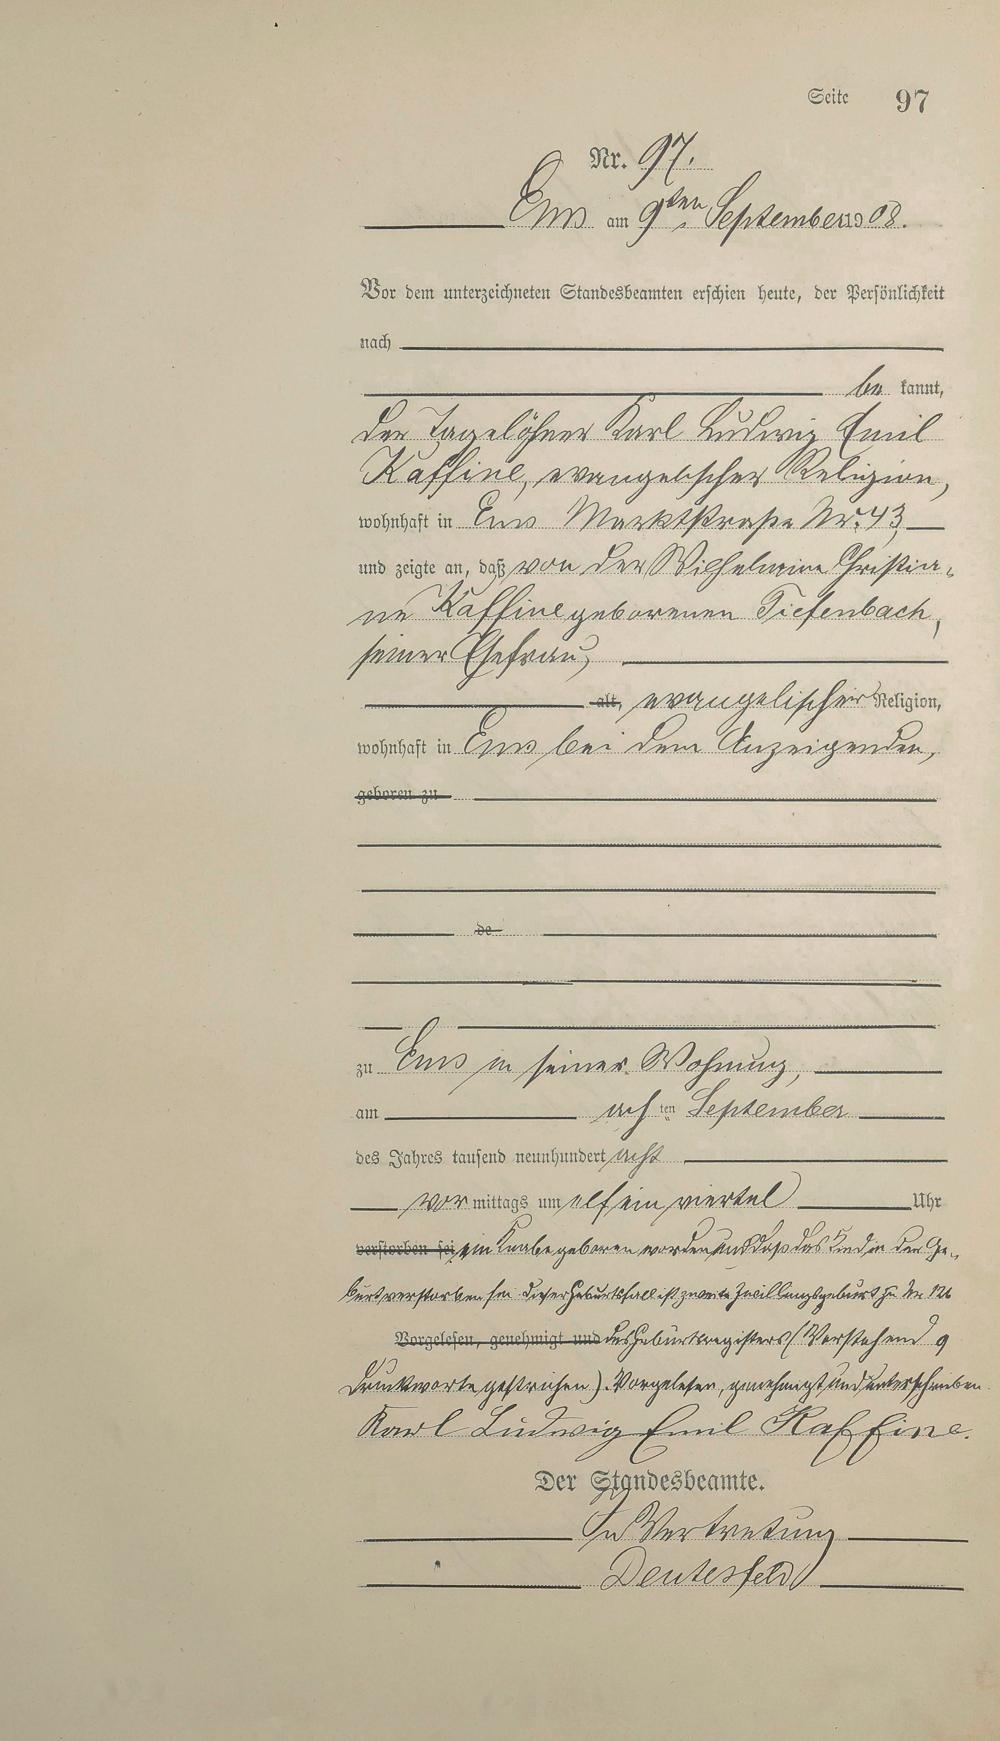 Seite 97
Nr. 97.
Ems am 9ten September 1908.
Vor dem unterzeichneten Standesbeamten erschien heute, der Persönlichkeit
nach
be kannt,
der Tagelöhner Karl Ludwig Emil
Kaffine, evangelischer Religion,
wohnhaft in Ems Marktstraße Nr. 43,
und zeigte an, daß von der Wilhelmine Christia-
ne Kaffine geborenen Tiefenbach,
seiner Ehefrau,
alt, evangelischer Religion,
wohnhaft in Ems bei dem Anzeigenden,
geboren zu
de
zu Ems in seiner Wohnung,
am ach ten September
des Jahres tausend neunhundert acht
vor mittags um elf ein viertel Uhr
verstorben sei ein Knabe geboren worden und daß das Kind in der Ge-
burt verstorben sei. Dieser Geburtsfall ist zweite Zwillingsgeburt zu Nr.
Vorgelesen, genehmigt und des Geburtsregisters (Vorstehend 9
Druckworte gestrichen). Vorgelesen, genehmigt und unterschrieben
Karl Ludwig Emil Kaffine.
Der Standesbeamte.
In Vertretung
Deutesfeld